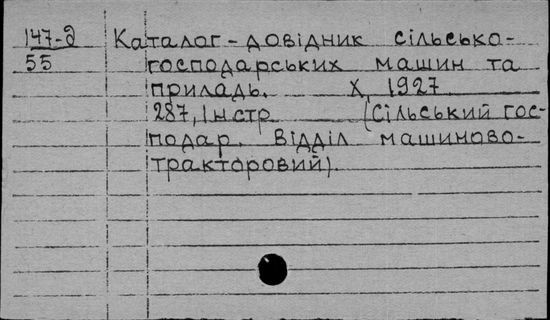 147-д Каталог-довідник сільсько-
55 господарських машин та
приладь. Х, 1927
287, Iн стр (Сільський гос-
подар. Відділ машиново-
тракторовий).